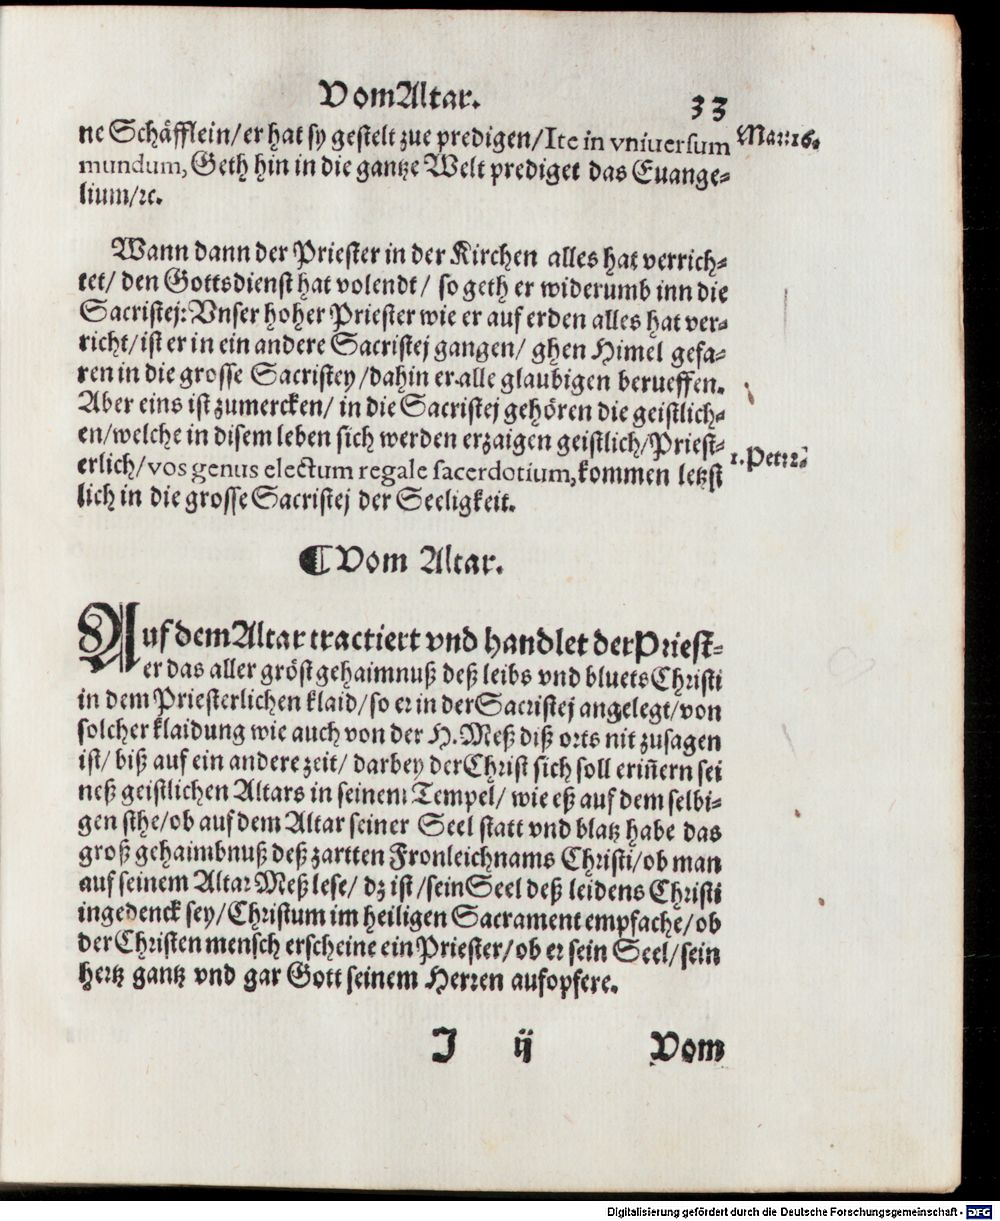 Vom Altar.
33
ne Schäfflein/ er hat sy gestelt zue predigen/ Ite in vniuersum
Mar: 16.
mundum, Geth hin in die gantze Welt prediget das Euange-
lium/ ꝛc.
Wann dann der Priester in der Kirchen alles hat verrich-
tet/ den Gottsdienst hat volendt/ so geth er widerumb inn die
Sacristej: Vnser hoher Priester wie er auf erden alles hat ver-
richt/ ist er in ein andere Sacristej gangen/ ghen Himel gefa-
ren in die grosse Sacristey/ dahin er alle glaubigen berueffen.
Aber eins ist zumercken/ in die Sacristej gehören die geistlich-
en/ welche in disem leben sich werden erzaigen geistlich/ Priest-
1. Petr: 2.
erlich/ vos genus electum regale sacerdotium, kommen letzst
lich in die grosse Sacristej der Seeligkeit.
¶ Vom Altar.
Auf dem Altar tractiert vnd handlet der Priest-
er das aller gröst gehaimnuß deß leibs vnd bluets Christi
in dem Priesterlichen klaid/ so er in der Sacristej angelegt/ von
solcher klaidung wie auch von der H. Meß diß orts nit zusagen
ist/ biß auf ein andere zeit/ darbey der Christ sich soll eriñern sei
neß geistlichen Altars in seinem Tempel/ wie eß auf dem selbi-
gen sthe/ ob auf dem Altar seiner Seel statt vnd blatz habe das
groß gehaimbnuß deß zartten Fronleichnams Christi/ ob man
auf seinem Altar Meß lese/ dz ist/ sein Seel deß leidens Christi
ingedenck sey/ Christum im heiligen Sacrament empfache/ ob
der Christen mensch erscheine ein Priester/ ob er sein Seel/ sein
hertz gantz vnd gar Gott seinem Herren aufopfere.
J ij
Vom
Digitalisierung gefördert durch die Deutsche Forschungsgemeinschaft - DFG